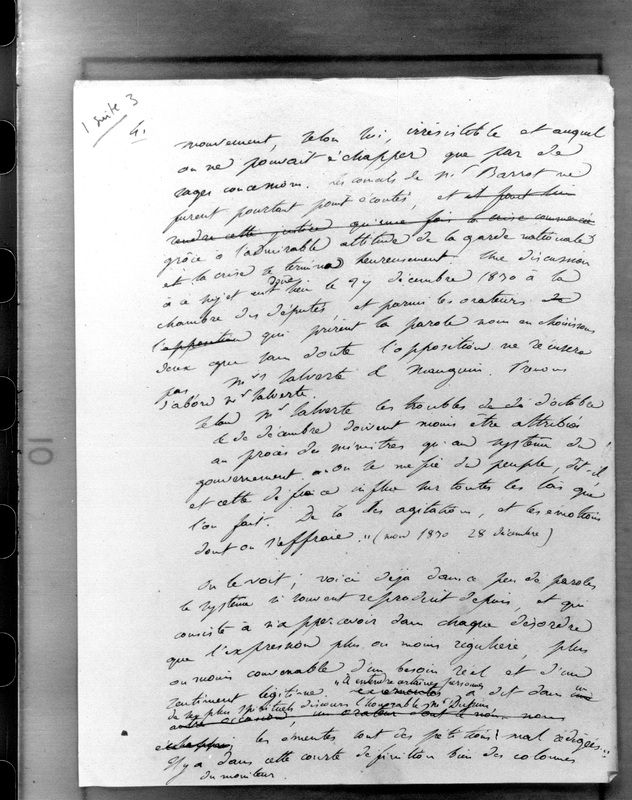 1 suite 3
4.
mouvement, selon lui, irrésistible et auquel
on ne pouvait échapper que par de
sages concessions. Les conseils de Mr Barrot ne
furent pourtant point écoutés, et et faut bien
rendre cette justice qu'une fois la crise commencée
grâce à l'admirable attitude de la garde nationale
et la crise se termina heureusement. Une discussion
à ce sujet eut donc lieu le 29 décembre 1830 à la
chambre des députés et parmi les orateurs de
l'opposition qui prirent la parole nous en choisissons
deux que sans doute l'opposition ne récusera
pas Mrs Salverte & Mauguin. Prenons
d'abord Mr Salverte.
Selon Mr Salverte les troubles d'octobre
& de décembre doivent moins être attribués
au procès des ministres qu'au système du
gouvernement. "On se méfie du peuple, dit-il,
et cette défiance influe sur toutes les lois que
l'on fait. De là des agitations, et les émotions
dont on s'effraie." (mon 1830 28 décembre)
On le voit, voici déjà dans ce peu de paroles
le système si souvent reproduit depuis, et qui
consiste à n'appercevoir dans chaque désordre
que l'expression plus ou moins régulière, plus
ou moins convenable d'un besoin réel et d'un
sentiment légitime. "A entendre certaines personnes a dit dans un
de ses plus spirituels discours l'honorable Mr Dupin
autre occasion, un orateur dont le nom nous
les émeutes sont des pétitions mal rédigées."
Il y a dans cette courte définition bien des colonnes
du moniteur.
10